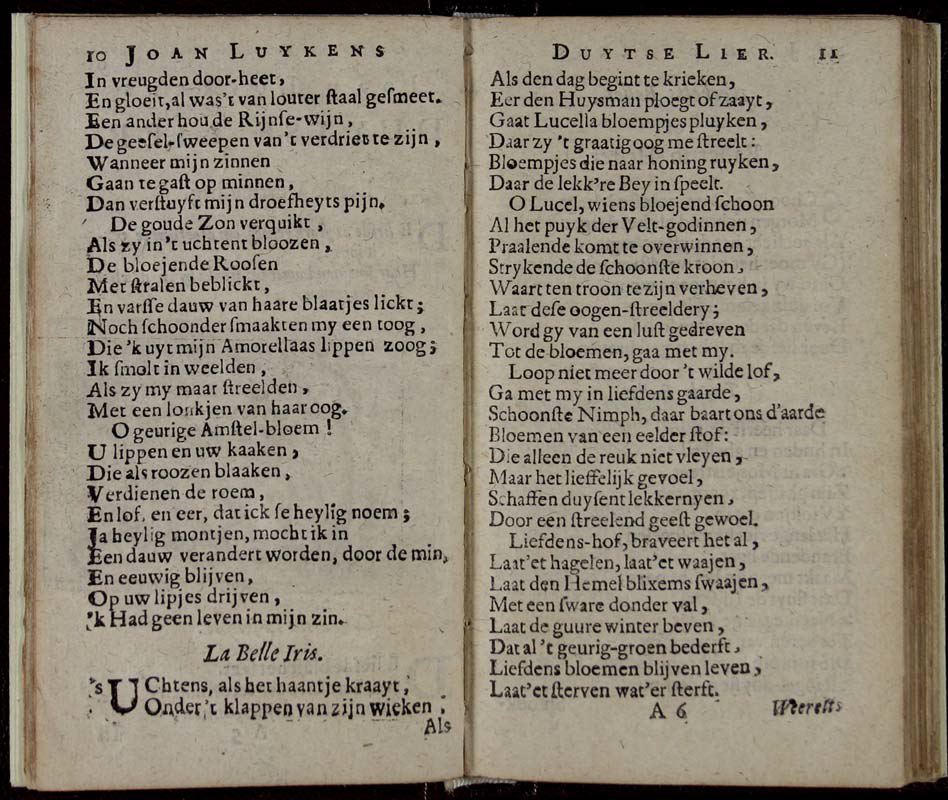 10 JOAN LUYKENS
In vreugden door-heet,
En gloeit, al was't van louter ſtaal geſmeet.
Een ander houde Rijnſe-wijn,
De geeſel-ſweepen van't verdriet te zijn,
Wanneer mijn zinnen
Gaan te gaſt op minnen,
Dan verſtuyft mijn droefheyts pijn.
De goude Zon verquikt,
Als zy in't uchtent bloozen,
De bloejende Rooſen
Met ſtralen beblickt,
En varſſe dauw van haare blaatjes lickt;
Noch ſchoonder ſmaakten my een toog,
Die 'k uyt mijn Amorellaas lippen zoog;
Ik ſmolt in weelden,
Als zy my maar ſtreelden,
Met een lonkjen van haar oog.
O geurige Amſtel-bloem!
U lippen en uw kaaken,
Die als roozen blaaken,
Verdienen de roem,
En lof, en eer, dat ick ſe heylig noem;
Ja heylig montjen, mocht ik in
Een dauw verandert worden, door de min,
En eeuwig blijven,
Op uw lipjes drijven,
'k Had geen leven in mijn zin.
La Belle Iris.
's UChtens, als het haantje kraayt,
Onder 't klappen van zijn wieken,
Als
DUYTSE LIER. 11
Als den dag begint te krieken,
Eer den Huysman ploegt of zaayt,
Gaat Lucella bloempjes pluyken,
Daar zy 't graatig oog me ſtreelt:
Bloempjes die naar honing ruyken,
Daar de lekk're Bey in ſpeelt.
O Lucel, wiens bloejend ſchoon
Al het puyk der Velt-godinnen,
Praalende komt te overwinnen,
Strykende de ſchoonſte kroon,
Waart ten troon te zijn verheven,
Laat deſe oogen-ſtreeldery;
Word gy van een luſt gedreven
Tot de bloemen, gaa met my.
Loop niet meer door 't wilde lof,
Ga met my in liefdens gaarde,
Schoonſte Nimph, daar baart ons d'aarde
Bloemen van een eelder ſtof:
Die alleen de reuk niet vleyen,
Maar het lieffelijk gevoel,
Schaffen duyſent lekkernyen,
Door een ſtreelend geeſt gewoel.
Liefdens-hof, braveert het al,
Laat'et hagelen, laat'et waajen,
Laat den Hemel blixems ſwaajen,
Met een ſware donder val,
Laat de guure winter beven,
Dat al 't geurig-groen bederft,
Liefdens bloemen blijven leven,
Laat'et ſterven wat'er ſterft.
A 6 Weerelts